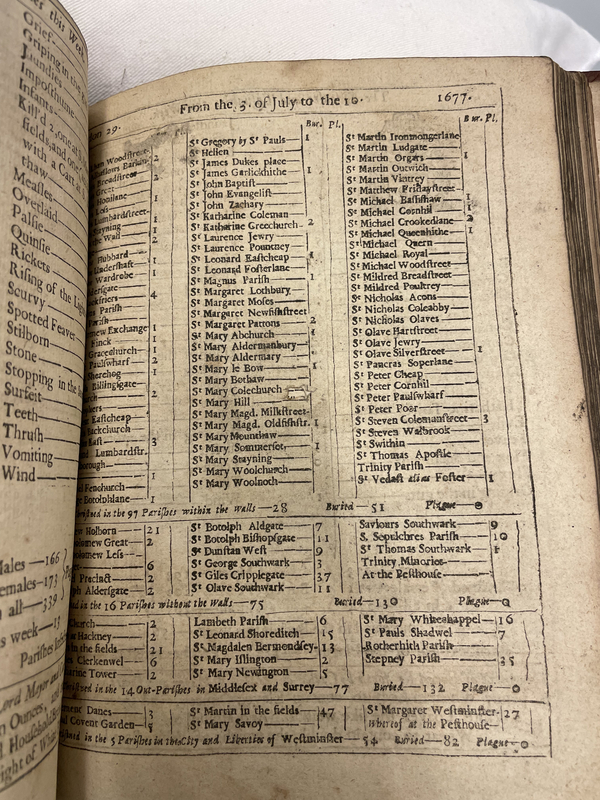 ver this Week
Grief
Griping in the
Jaundies
Imposthume
Infants
Kill'd 2, one at
field, and one
with a Cart at
thaw
Measles
Overlaid
Palsie
Quinsie
Rickets
Rising of the Lights
Scurvy
Spotted Feaver
Stilborn
Stone
Stopping in the
Surfeit
Teeth
Thrush
Vomiting
Wind
Males—166
Females—173
In all—339
this week—13
Parishes
Lord Mayor and
Ounces,
Household
29. From the 3. of July to the 10. 1677.
Pl. Bur. Pl. Bur. Pl.
Woodstreet
2
Breadstreet 2
Lumbardstreet 1
Stayning 1
the Wall 2
Hubbard
Undershaft 1
Wardrobe 1
4
Parish
new Exchange 1
Finck 1
Gracechurch 1
Paulswharf 2
Sherehog 1
Billingsgate
2
Eastcheap
Backchurch
East 3
Lumbardstr.
Fenchurch 1
Botolphlane 1
St Gregory by St Pauls 1
St Hellen
St James Dukes place
St James Garlickhithe 1
St John Baptist
St John Evangelist
St John Zachary
St Katharine Coleman
St Katharine Creechurch 2
St Laurence Jewry
St Laurence Pountney
St Leonard Eastcheap 1
St Leonard Fosterlane
St Magnus Parish 1
St Margaret Lothbury
St Margaret Moses
St Margaret Newfishstreet
St Margaret Pattons 2
St Mary Abchurch 1
St Mary Aldermanbury
St Mary Aldermary
St Mary le Bow 1
St Mary Bothaw
St Mary Colechurch
St Mary Hill
St Mary Magd. Milkstreet
St Mary Magd. Oldfishstr. 1
St Mary Mounthaw
St Mary Sommerset 1
St Mary Stayning
St Mary Woolchurch
St Mary Woolnoth
St Martin Ironmongerlane
St Martin Ludgate
St Martin Orgars 1
St Martin Outwich
St Martin Vintrey
St Matthew Fridaystreet
St Michael Bassishaw 1
St Michael Cornhil 1
St Michael Crookedlane 2
St Michael Queenhithe 1
St Michael Quern
St Michael Royal
St Michael Woodstreet
St Mildred Breadstreet
St Mildred Poultrey
St Nicholas Acons
St Nicholas Coleabby
St Nicholas Olaves
St Olave Hartstreet
St Olave Jewry
St Olave Silverstreet 1
St Pancras Soperlane
St Peter Cheap
St Peter Cornhil
St Peter Paulswharf
St Peter Poor
St Steven Colemanstreet 3
St Steven Walbrook
St Swithin
St Thomas Apostle
Trinity Parish
St Vedast alias Foster 1
Christned in the 97 Parishes within the walls—28 Buried—51 Plague—0
Holborn 21
Bartholomew Great 2
Bartholomew Less
6
Precinct 2
Aldersgate 2
St Botolph Aldgate 7
St Botolph Bishopsgate 11
St Dunstan West 9
St George Southwark 3
St Giles Cripplegate 37
St Olave Southwark 11
Saviours Southwark 9
S. Sepulchres Parish 10
St Thomas Southwark 1
Trinity Minories
At the Pesthouse
Christned in the 16 Parishes without the Walls—75 Buried—130 Plague—0
Church 2
at Hackney 2
in the fields 21
Clerkenwel 6
Tower 2
Lambeth Parish 6
St Leonard Shoreditch 15
St Magdalen Bermondsey 13
St Mary Islington 2
St Mary Newington 5
St Mary Whitechappel 16
St Pauls Shadwel 7
Rotherhith Parish
Stepney Parish 35
Christned in the 14 Out-Parishes in Middlesex and Surrey—77 Buried—132 Plague—0
Clement Danes 3
Covent Garden 5
St Martin in the fields 47
St Mary Savoy
St Margaret Westminster 27
Whereof at the Pesthouse
Christned in the 5 Parishes in the City and Liberties of Westminster—54 Buried—82 Plague—0